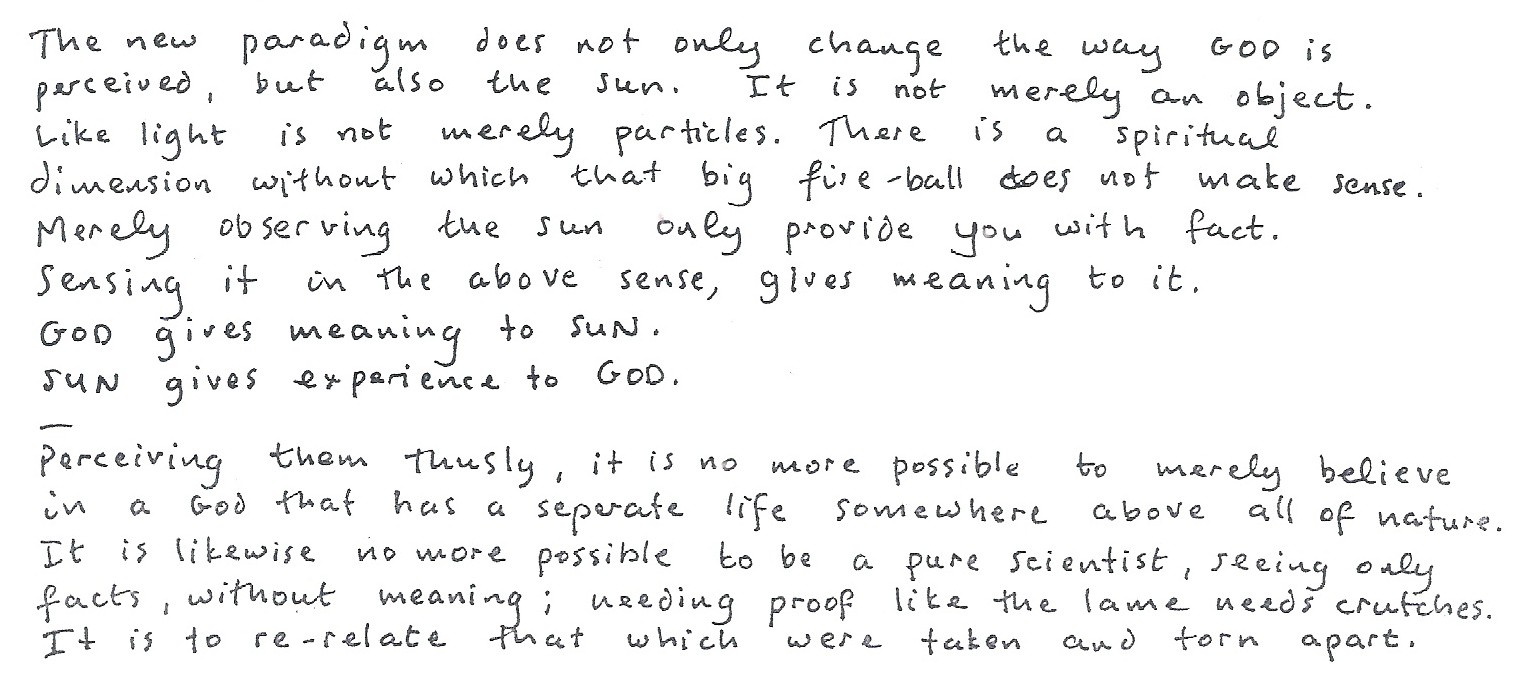 The new paradigm does not only change the way GOD is
perceived, but also the sun. It is not merely an object.
Like light is not merely particles. There is a spiritual
dimension without which that big fire-ball does not make sense.
Merely observing the sun only provide you with fact.
Sensing it in the above sense, gives meaning to it.
GOD gives meaning to SUN.
SUN gives experience to GOD.
—
Perceiving them thusly, it is no more possible to merely believe
in a God that has a seperate life somewhere above all of nature.
It is likewise no more possible to be a pure scientist, seeing only
facts, without meaning; needing proof like the lame needs crutches.
It is to re-relate that which were taken and torn apart.